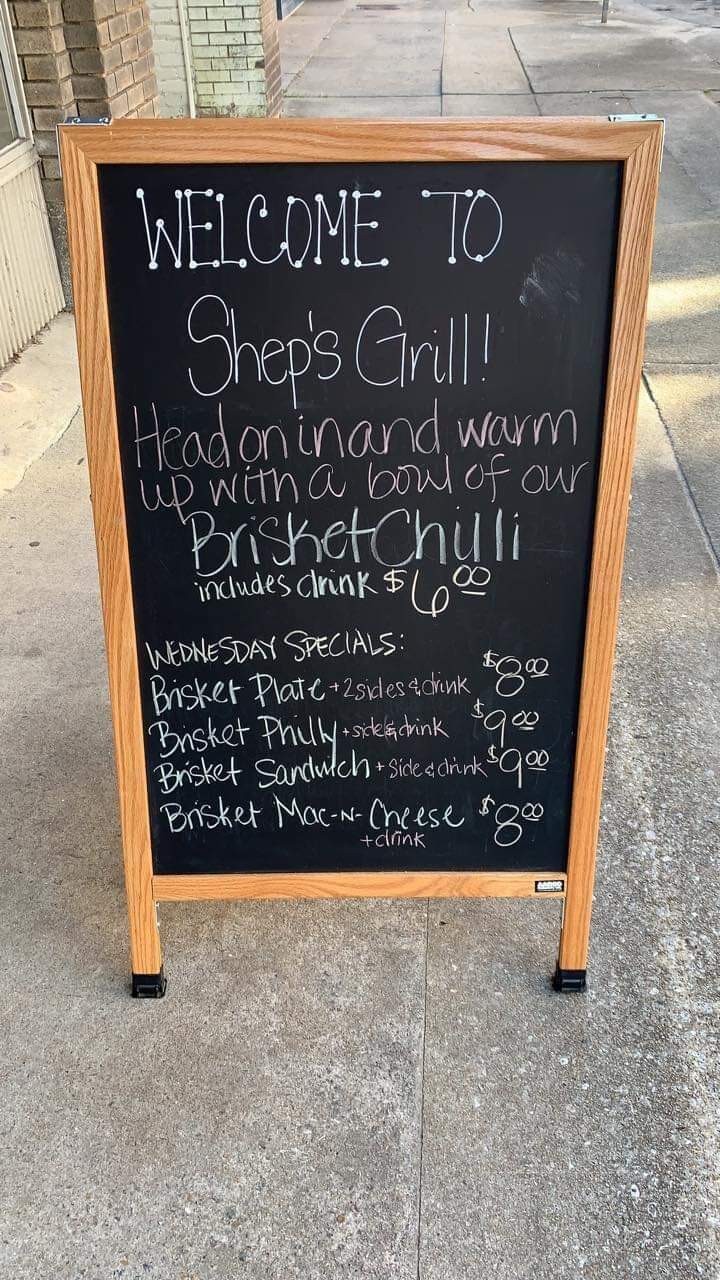 WELCOME TO
Shep's Grill!
Head on in and warm
up with a bowl of our
Brisket Chilli
includes drink $6.00
WEDNESDAY SPECIALS:
Brisket Plate + 2 sides & drink $8.00
Brisket Philly + side & drink $9.00
Brisket Sandwich + Side & drink $9.00
Brisket Mac-N-Cheese $8.00
+ drink